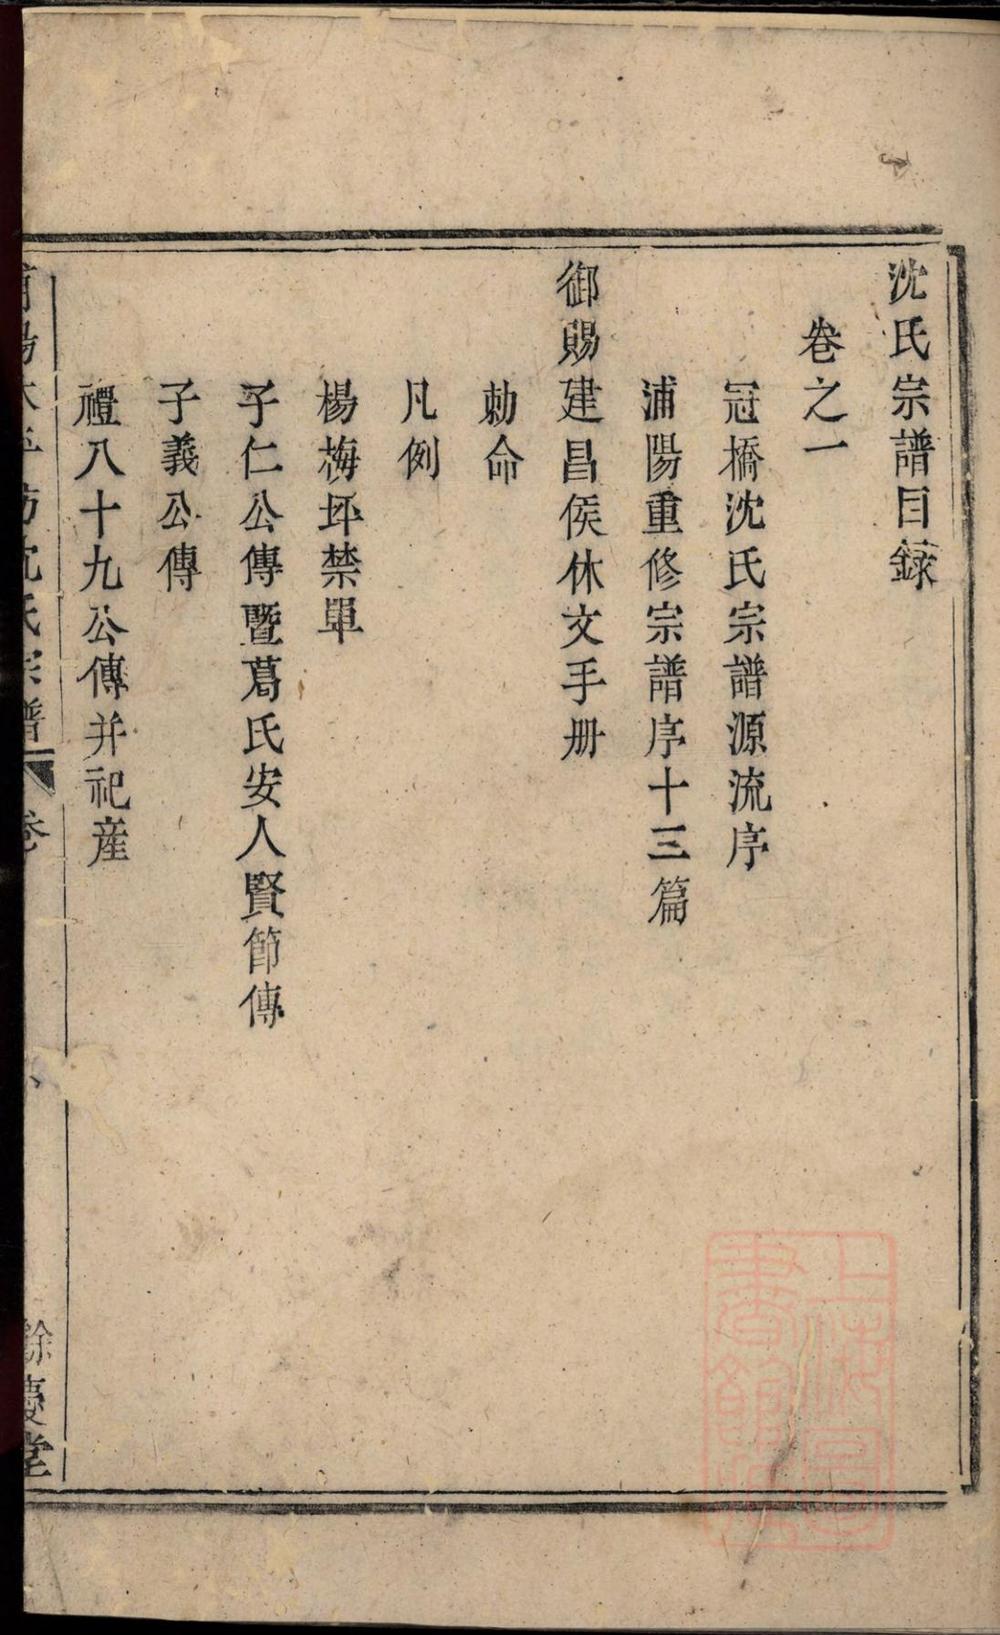 沈氏宗譜目錄
卷之一
冠橋沈氏宗譜源流序
浦陽重修宗譜序十三篇
御賜建昌侯休文手册
勅命
凡例
楊梅坪禁單
子仁公傳暨葛氏安人賢節傳
子義公傳
禮八十九公傳并祀產
沈氏宗譜
卷
餘慶堂
上海圖書館藏